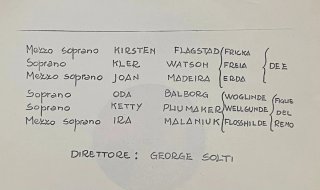 Mezzo soprano KIRSTEN FLAGSTAD FRICKA
Soprano KLER WATSON FREIA DEE
Mezzo soprano JOAN MADEIRA ERDA
Soprano ODA BALBORG WOGLINDE FIGLIE
Soprano KETTY PLUMAKER WELLGUNDE DEL
Mezzo soprano IRA MALANIUK FLOSSHILDE RENO
DIRETTORE: GEORGE SOLTI